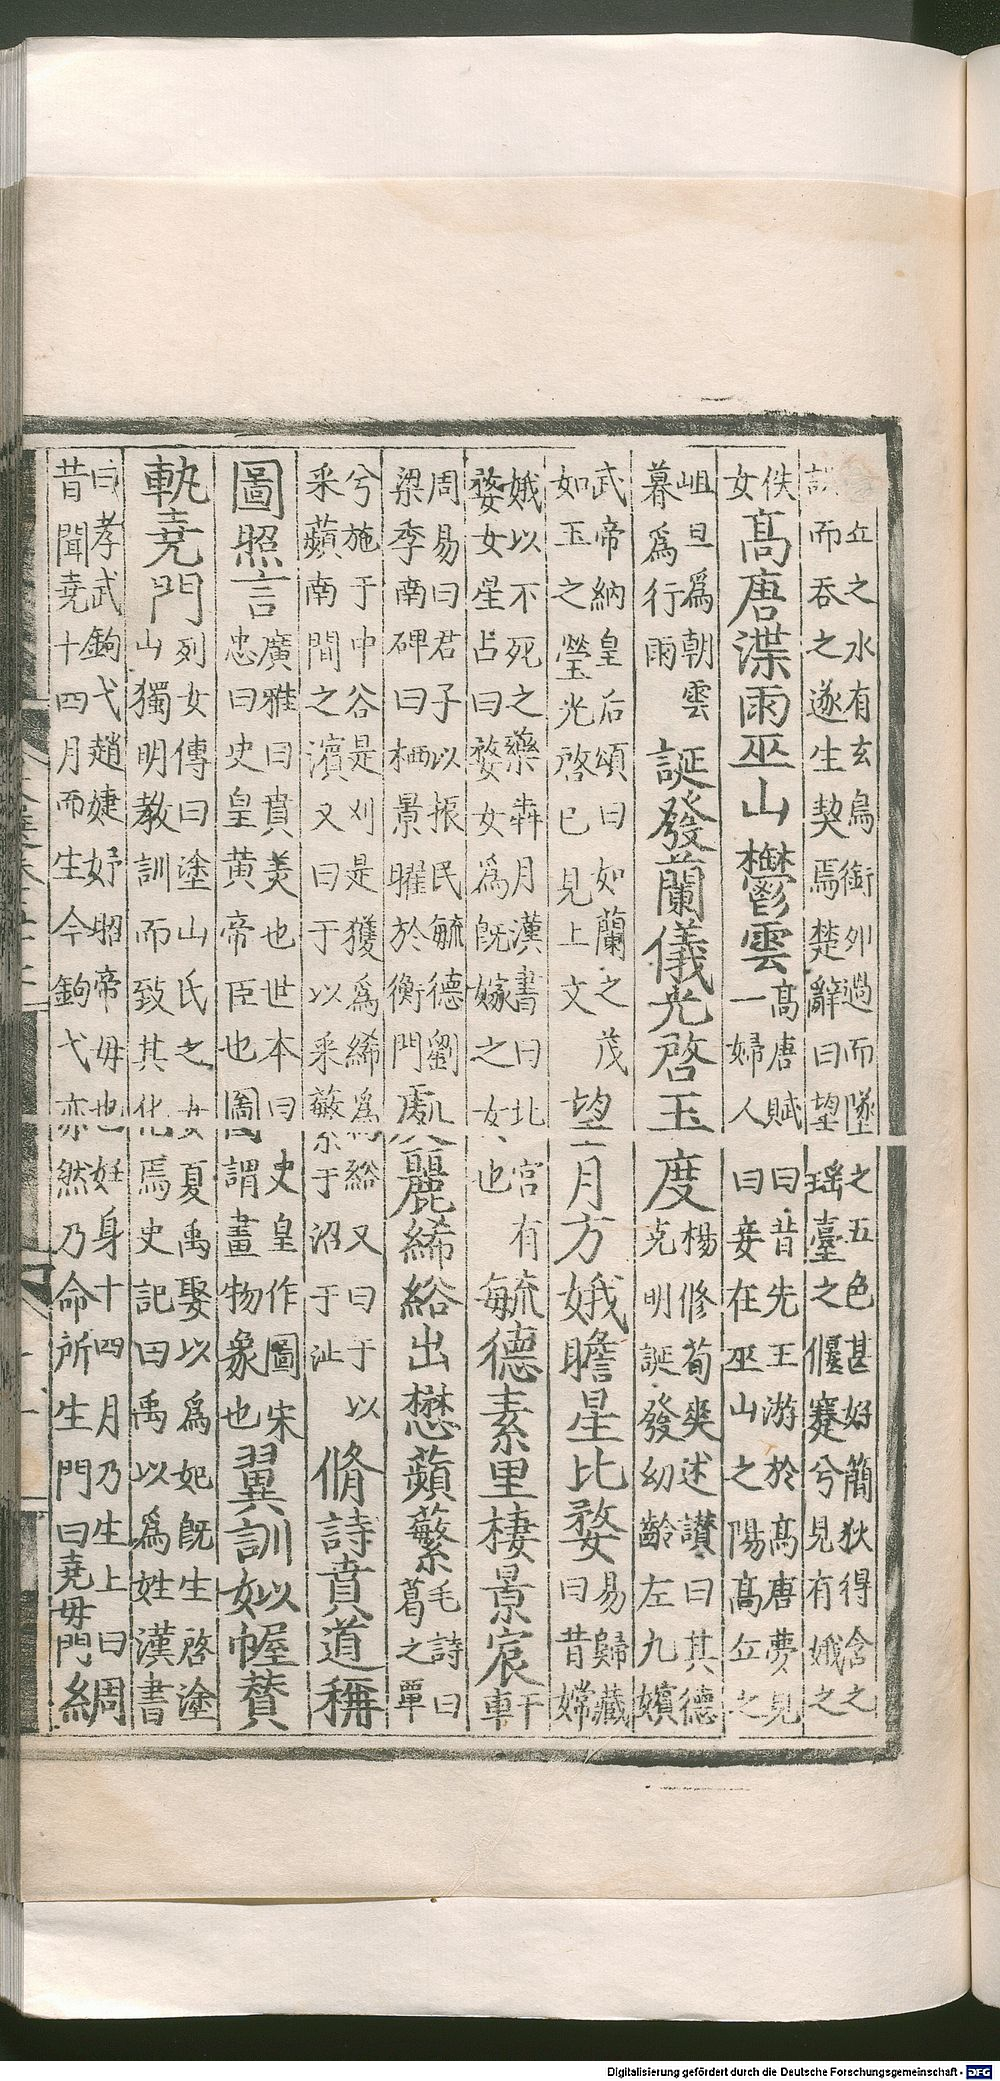 丘之水有玄鳥銜卵過而墜之五色甚好簡狄得含之
而吞之遂生契焉楚辭曰望瑤臺之偃蹇兮見有娀之
佚女高唐渫雨巫山鬱雲高唐賦曰昔先王游於高唐夢見一婦人曰妾在巫山之陽高丘之
岨旦爲朝雲暮爲行雨誕發蘭儀光啓玉度楊脩荀爽述讃曰其德克明誕發幼齡左九嬪
武帝納皇后頌曰如蘭之茂如玉之瑩光啓已見上文望月方娥瞻星比婺易歸藏曰昔嫦
娥以不死之藥犇月漢書曰北宮有婺女星占曰婺女爲旣嫁之女也毓德素里棲景宸軒
周易曰君子以振民毓德劉梁季南碑曰栖景曜於衡門處麗絺綌出懋蘋蘩毛詩曰葛之覃
兮施于中谷是刈是獲爲絺爲綌又曰于以采蘋南澗之濱又曰于以采蘩于沼于沚脩詩賁道稱
圖照言廣雅曰賁美也世本曰史皇作圖宋忠曰史皇黃帝臣也圖謂畫物象也翼訓姒幄贊
軌堯門列女傳曰塗山氏之女夏禹娶以爲妃旣生啓塗山獨明教訓而致其化焉史記曰禹以爲姓漢書
曰孝武鉤弋趙婕妤昭帝母也妊身十四月乃生上曰昔聞堯十四月而生今鉤弋亦然乃命所生門曰堯母門綢
Digitalisierung gefördert durch die Deutsche Forschungsgemeinschaft - DFG